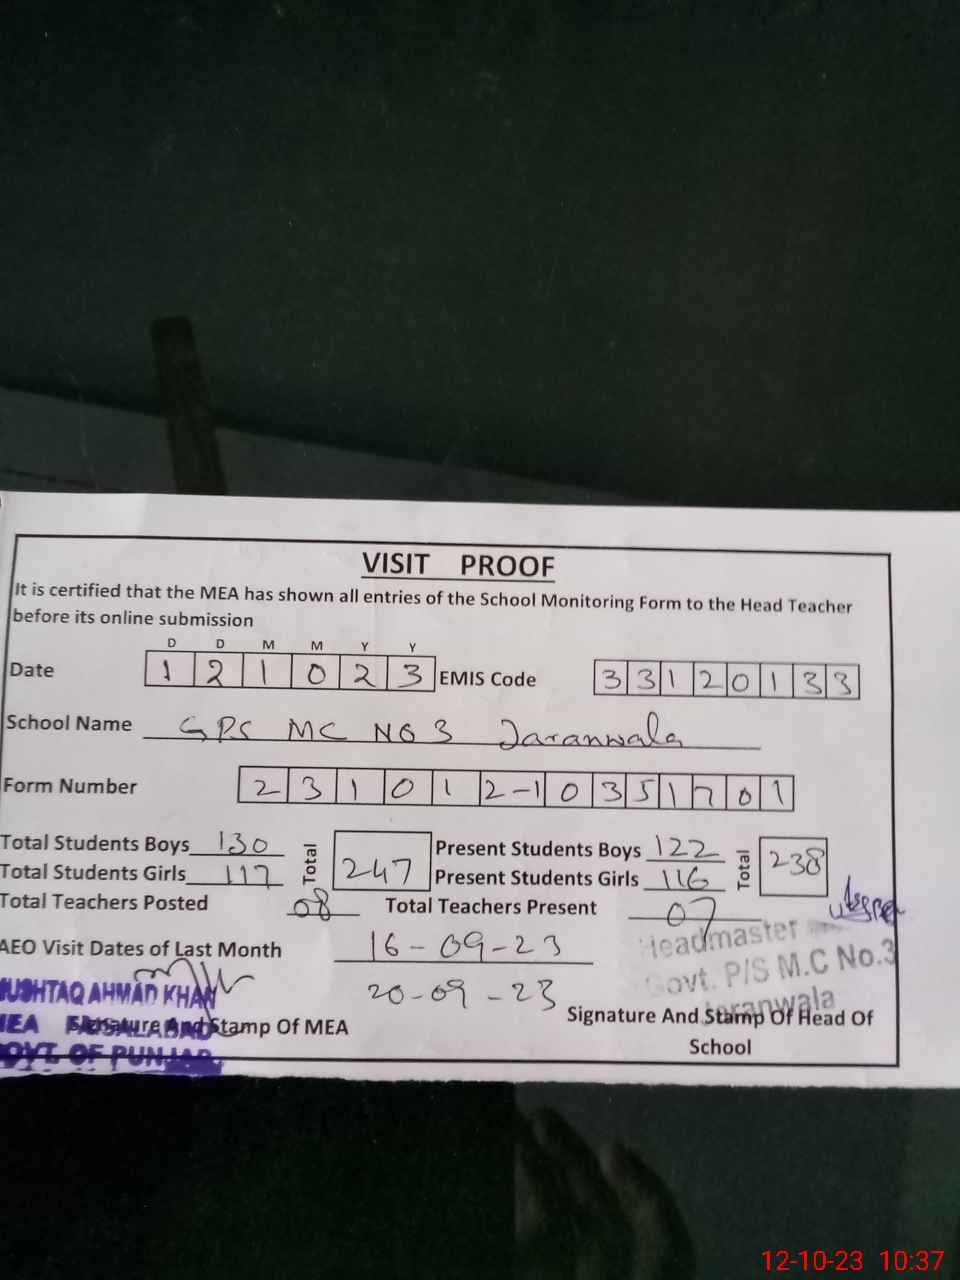 VISIT PROOF
It is certified that the MEA has shown all entries of the School Monitoring Form to the Head Teacher
before its online submission
D D M M Y Y
Date 1 2 1 0 2 3 EMIS Code 3 3 1 2 0 1 3 3
School Name GPS MC NO 3 Jaranwala
Form Number 2 3 1 0 1 2-1 0 3 5 1 7 0 1
Total Students Boys 130 Total 247 Present Students Boys 122 Total 238
Total Students Girls 117 Present Students Girls 116
Total Teachers Posted 08 Total Teachers Present 07
AEO Visit Dates of Last Month 16-09-23
20-09-23
Headmaster
Govt. P/S M.C No.3
Jaranwala
MUSHTAQ AHMAD KHAN
MEA FAISALABAD
GOVT. OF PUNJAB
Signature And Stamp Of MEA
Signature And Stamp Of Head Of
School
12-10-23 10:37